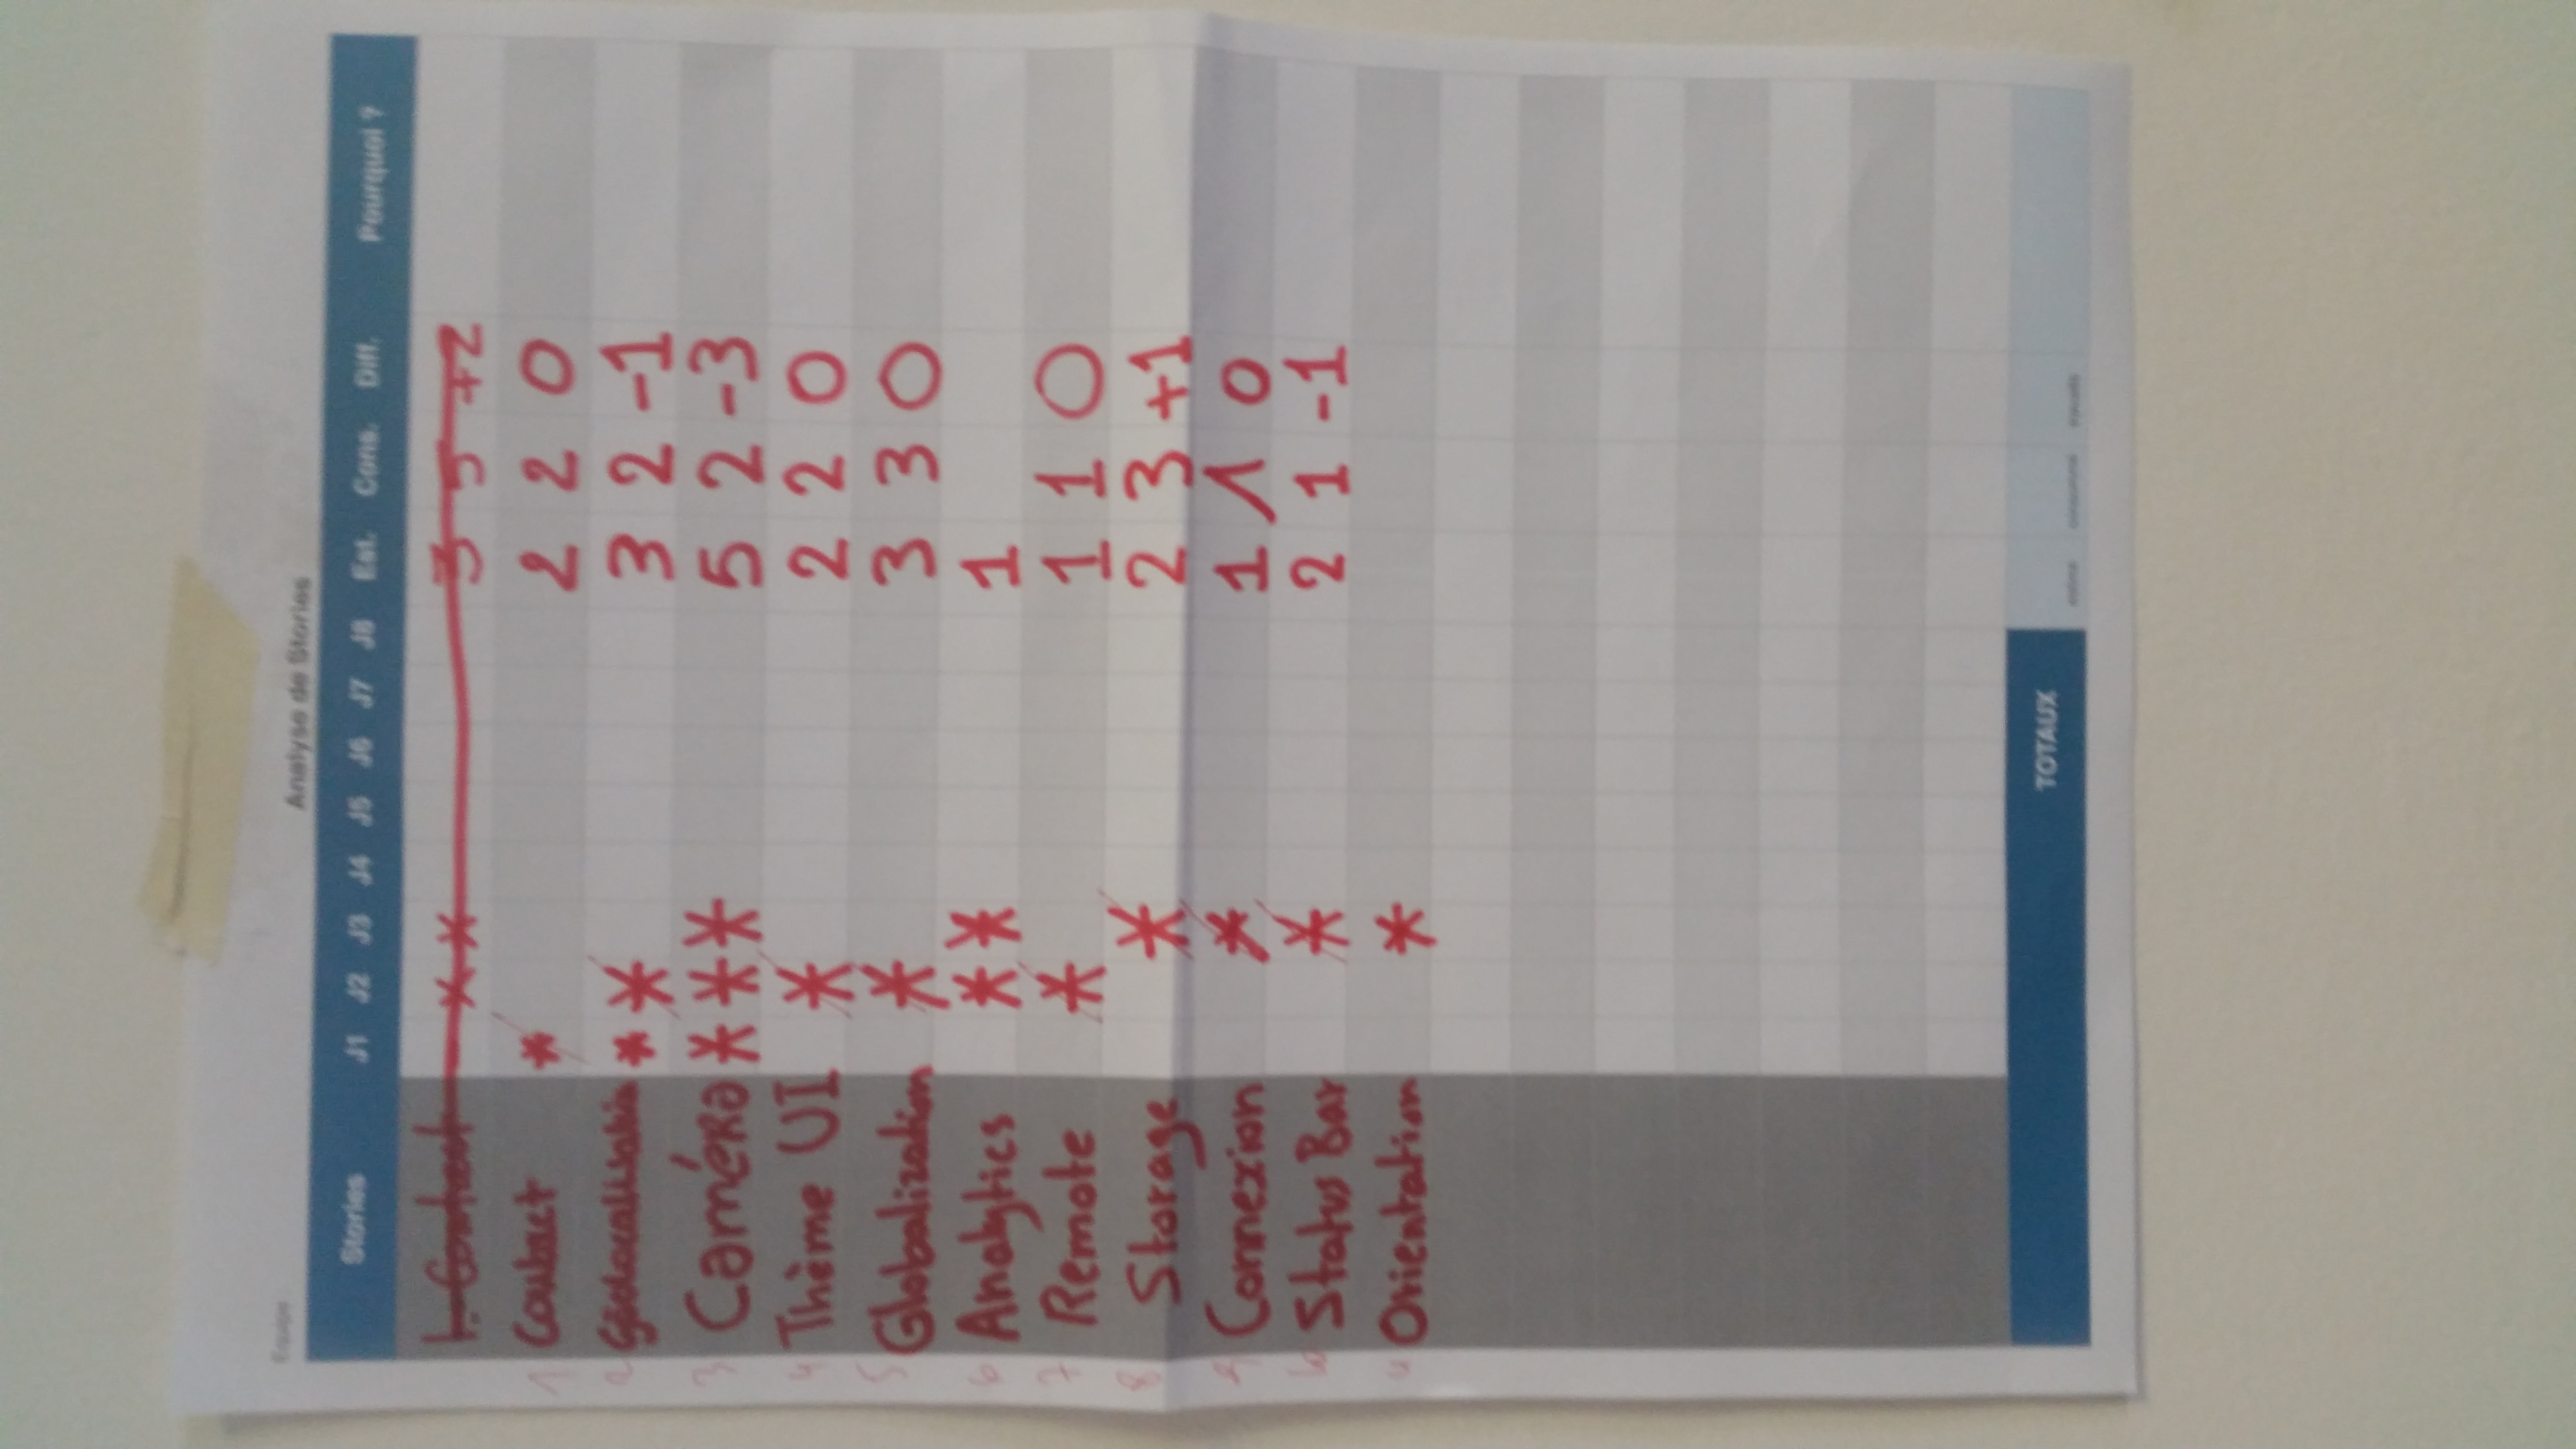 Equipe
Analyse de Stories
Stories J1 J2 J3 J4 J5 J6 J7 J8 Est. Cons. Diff. Pourquoi ?
1. Contact * * 3 5 +2
1 Contact * 2 2 0
2 Géolocalisation * * 3 2 -1
3 Caméra * * * 5 2 -3
4 Thème UI * 2 2 0
5 Globalization * 3 3 0
6 Analytics * * 1
7 Remote * 1 1 0
8 Storage * 2 3 +1
9 Connexion * 1 1 0
10 Status Bar * 2 1 -1
11 Orientation *
TOTAUX
estimé consommé travaillé